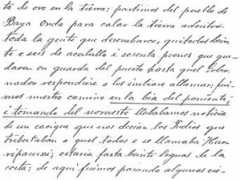 ta de oro en la tierra; partimos del pueblo de
Parga Onda para calar la tierra adentro.
Toda la gente que desembarco, quitados bein-
te e seis de acaballo i sesenta peones que que-
daron en guarda del puerto hasta quel Gober-
nador respondiese o los indios allaman; fui-
mos nuestro camino en la bia del poniente;
i tomando del noroeste llebabamos noticia
de un cacique que nos decian los Indios que
tributaban a quel todos e se llamaba Hurri-
riparacosi; estaria fasta beinte leguas de la
costa; de aqui fuimos pasando algunas cie-